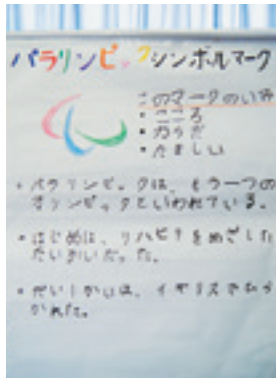 パラリンピックシンボルマーク
このマークのいみ
・こころ
・からだ
・たましい
・パラリンピックは、もう一つの
オリンピックといわれている。
・はじめは、リハビリをめざした
たいかいだった。
・だい1かいは、イギリスでひら
かれた。